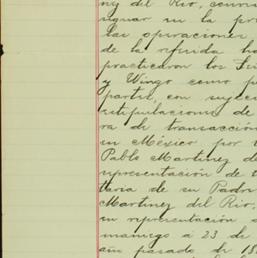 ny del Rio, convin
signar en la pro
las operaciones
de la referida ha
practicaron los Se
y Wingo como p
partes, con sujec
estipulaciones de
ra de transacción
en México por
Pablo Martinez d
representación de
taria de su Padr
Martinez del Rio,
en representación
manings a 23 de
año pasado de 18